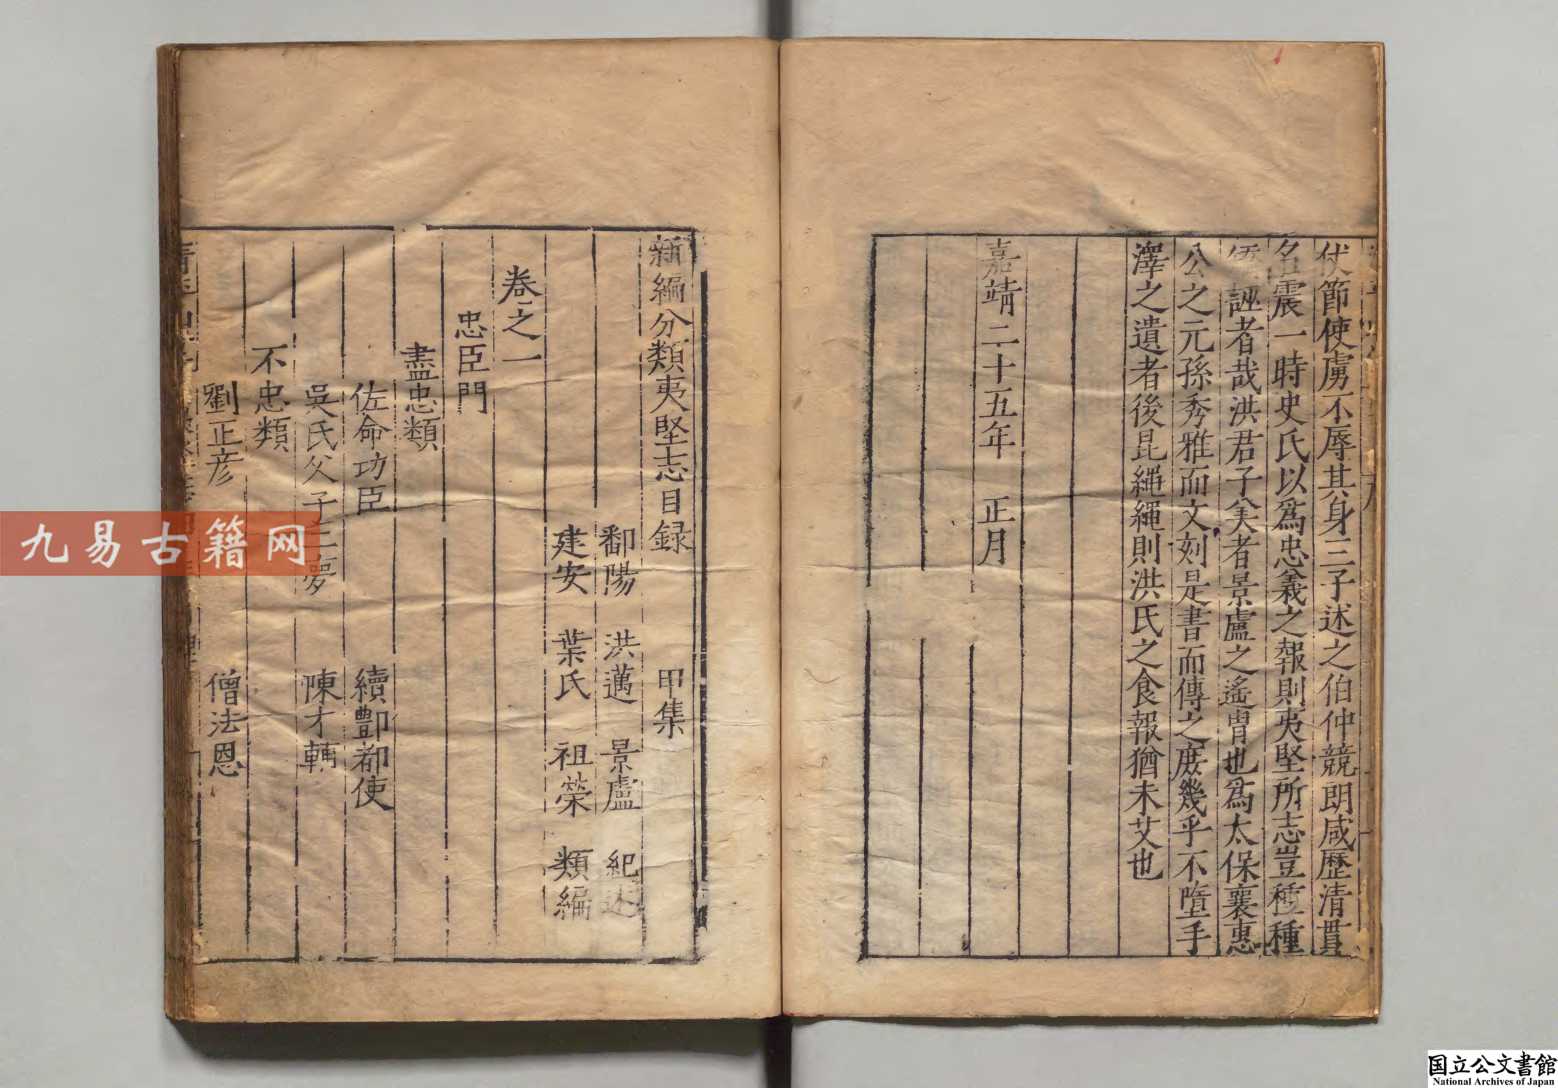 伏節使虜不辱其身三子述之伯仲競朗咸歷清貫
名震一時史氏以爲忠義之報則夷堅所志豈種種
誣者哉洪君子美者景盧之遙胄也爲太保襄惠
公之元孫秀雅而文刻是書而傳之庶幾乎不墮手
澤之遺者後昆繩繩則洪氏之食報猶未艾也
嘉靖二十五年 正月
新編分類夷堅志目録 甲集
鄱陽 洪邁 景盧 紀述
建安 葉氏 祖榮 類編
卷之一
忠臣門
盡忠類
佐命功臣 續酆都使
吳氏父子二夢 陳才輔
不忠類
劉正彦 僧法恩
九易古籍网
国立公文書館
National Archives of Japan